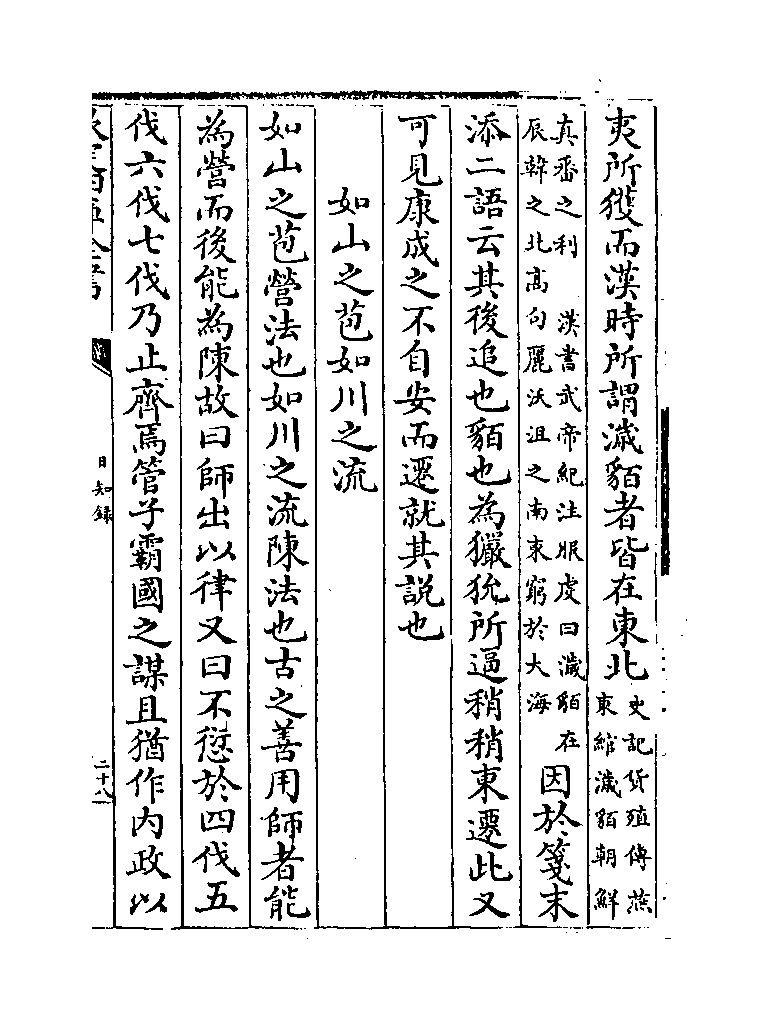 夷所獲而漢時所謂濊貊者皆在東北史記貨殖傳燕
東綰濊貊朝鮮
真番之利　漢書武帝紀注服虔曰濊貊在
辰韓之北高句麗沃沮之南東窮於大海
因於箋末
添二語云其後追也貊也為玁狁所逼稍稍東遷此又
可見康成之不自安而遷就其説也
如山之苞如川之流
如山之苞營法也如川之流陳法也古之善用師者能
為營而後能為陳故曰師出以律又曰不愆於四伐五
伐六伐七伐乃止齊焉管子霸國之謀且猶作内政以
日知録
二十八